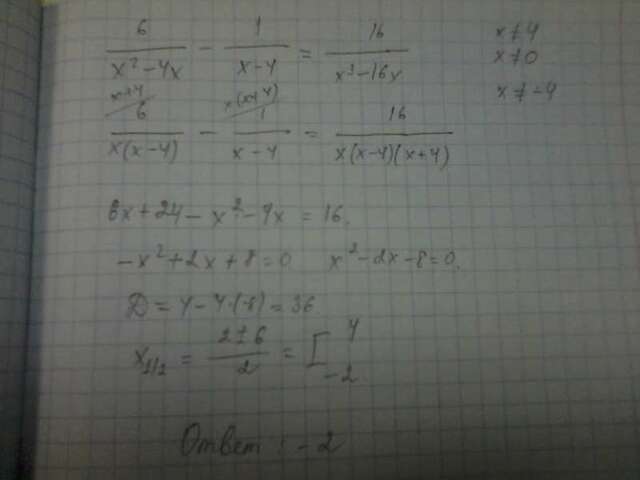 6/(x² - 4x) - 1/(x - 4) = 16/(x³ - 16x)
x ≠ 4
x ≠ 0
x ≠ -4
6/(x(x-4)) (x+4) - 1/(x - 4) (x(x+4)) = 16/(x(x-4)(x+4))
6x + 24 - x² - 4x = 16.
-x² + 2x + 8 = 0 x² - 2x - 8 = 0.
D = 4 - 4·(-8) = 36
x₁,₂ = (2 ± 6)/2 = [ 4
-2
Ответ: -2